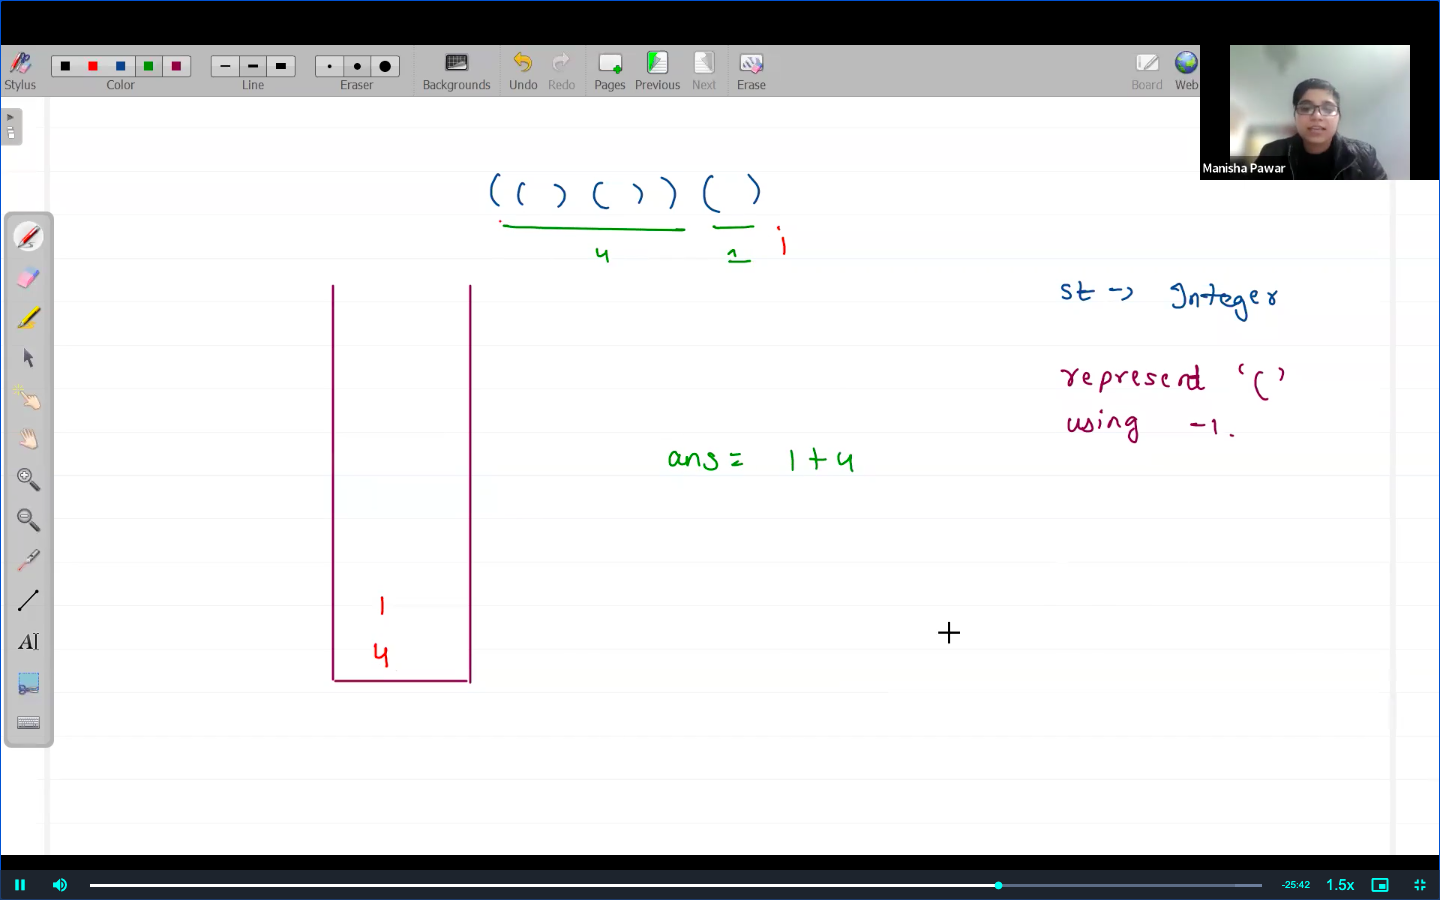 Stylus
Color
Line
Eraser
Backgrounds
Undo
Redo
Pages
Previous
Next
Erase
Board
Web
Manisha Pawar
( ( ) ( ) ) ( )
4
i
st -> Integer
represent '('
using -1.
ans = 1 + 4
1
4
AI
-25:42
1.5x